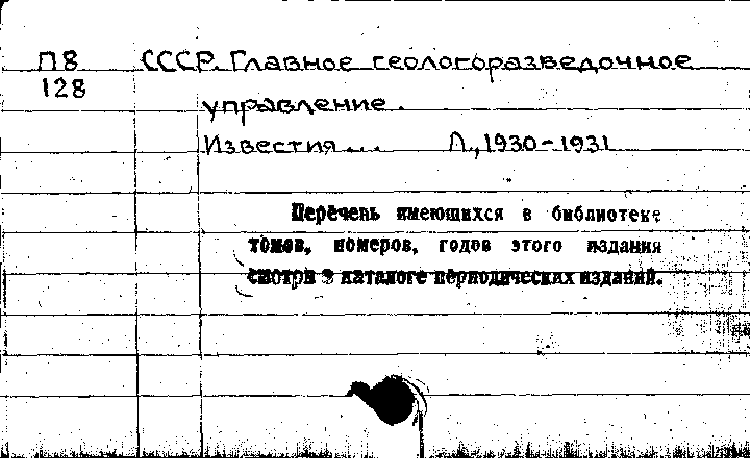 П8 СССР. Главное геологоразведочное
128
управление.
Известия... Л., 1930-1931
Перечень имеющихся в библиотеке
томов, номеров, годов этого издания
смотри в каталоге периодических изданий.